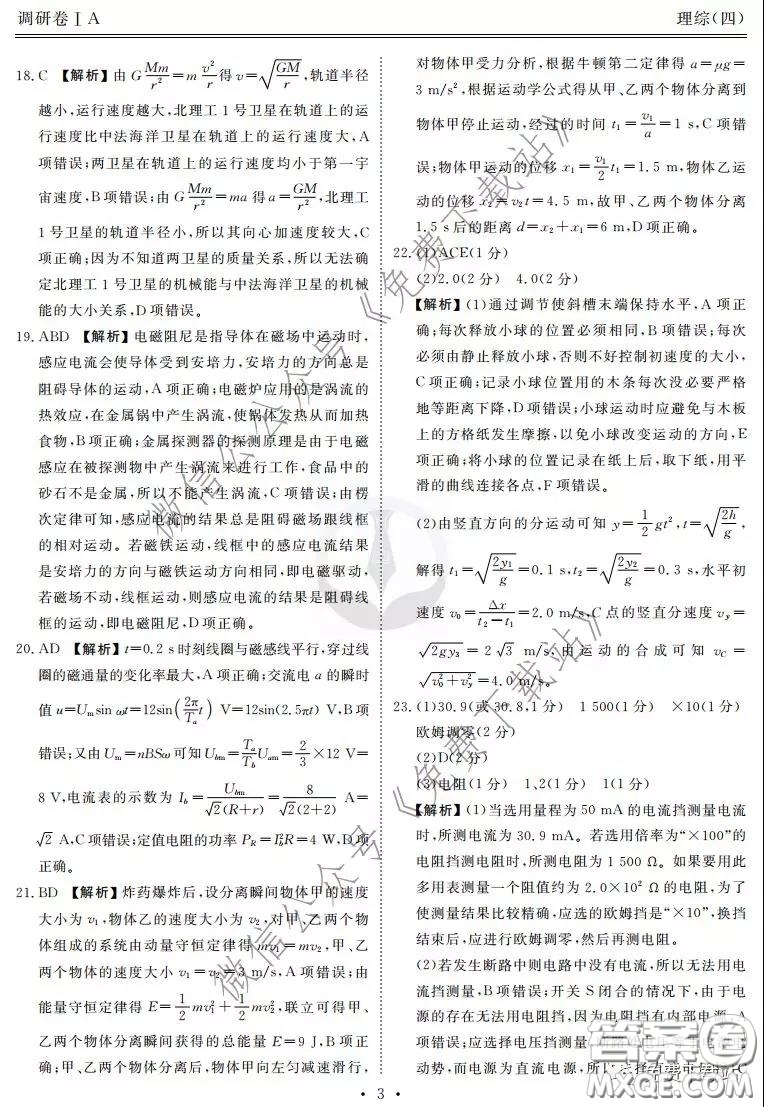 调研卷ⅠA
理综(四)
18. C 【解析】由 G\frac{Mm}{r^2}=m\frac{v^2}{r} 得 v=\sqrt{\frac{GM}{r}},轨道半径
越小,运行速度越大,北理工 1 号卫星在轨道上的运
行速度比中法海洋卫星在轨道上的运行速度大,A
项错误;两卫星在轨道上的运行速度均小于第一宇
宙速度,B 项错误;由 G\frac{Mm}{r^2}=ma 得 a=\frac{GM}{r^2},北理工
1 号卫星的轨道半径小,所以其向心加速度较大,C
项正确;因为不知道两卫星的质量关系,所以无法确
定北理工 1 号卫星的机械能与中法海洋卫星的机械
能的大小关系,D 项错误。
19. ABD 【解析】电磁阻尼是指导体在磁场中运动时,
感应电流会使导体受到安培力,安培力的方向总是
阻碍导体的运动,A 项正确;电磁炉应用的是涡流的
热效应,在金属锅中产生涡流,使锅体发热从而加热
食物,B 项正确;金属探测器的探测原理是由于电磁
感应在被探测物中产生涡流来进行工作,食品中的
砂石不是金属,所以不能产生涡流,C 项错误;由楞
次定律可知,感应电流的结果总是阻碍磁场跟线框
的相对运动。若磁铁运动,线框中的感应电流结果
是安培力的方向与磁铁运动方向相同,即电磁驱动,
若磁场不动,线框运动,则感应电流的结果是阻碍线
框的运动,即电磁阻尼,D 项正确。
20. AD 【解析】t=0.2 s 时刻线圈与磁感线平行,穿过线
圈的磁通量的变化率最大,A 项正确;交流电 a 的瞬时
值 u=U_m sin ωt=12sin(\frac{2π}{T_a}t) V=12sin(2.5πt) V,B 项
错误;又由 U_m=nBSω 可知 U_{bm}=\frac{T_a}{T_b}U_{am}=\frac{2}{3}×12 V=
8 V,电流表的示数为 I_b=\frac{U_{bm}}{\sqrt{2}(R+r)}=\frac{8}{\sqrt{2}(2+2)} A=
\sqrt{2} A,C 项错误;定值电阻的功率 P_R=I_b^2R=4 W,D 项
正确。
21. BD 【解析】炸药爆炸后,设分离瞬间物体甲的速度
大小为 v_1,物体乙的速度大小为 v_2,对甲、乙两个物
体组成的系统由动量守恒定律得 mv_1=mv_2,甲、乙
两个物体的速度大小 v_1=v_2=3 m/s,A 项错误;由
能量守恒定律得 E=\frac{1}{2}mv_1^2+\frac{1}{2}mv_2^2,联立可得甲、
乙两个物体分离瞬间获得的总能量 E=9 J,B 项正
确;甲、乙两个物体分离后,物体甲向左匀减速滑行,
对物体甲受力分析,根据牛顿第二定律得 a=μg=
3 m/s²,根据运动学公式得从甲、乙两个物体分离到
物体甲停止运动,经过的时间 t_1=\frac{v_1}{a}=1 s,C 项错
误;物体甲运动的位移 x_1=\frac{v_1}{2}t_1=1.5 m,物体乙运
动的位移 x_2=v_2t=4.5 m,故甲、乙两个物体分离
1.5 s 后的距离 d=x_2+x_1=6 m,D 项正确。
22. (1)ACE(1 分)
(2)2.0(2 分) 4.0(2 分)
【解析】(1)通过调节使斜槽末端保持水平,A 项正
确;每次释放小球的位置必须相同,B 项错误;每次
必须由静止释放小球,否则不好控制初速度的大小,
C 项正确;记录小球位置用的木条每次没必要严格
地等距离下降,D 项错误;小球运动时应避免与木板
上的方格纸发生摩擦,以免小球改变运动的方向,E
项正确;将小球的位置记录在纸上后,取下纸,用平
滑的曲线连接各点,F 项错误。
(2)由竖直方向的分运动可知 y=\frac{1}{2}gt^2,t=\sqrt{\frac{2h}{g}},
解得 t_1=\sqrt{\frac{2y_1}{g}}=0.1 s,t_2=\sqrt{\frac{2y_2}{g}}=0.3 s,水平初
速度 v_0=\frac{Δx}{t_2-t_1}=2.0 m/s,C 点的竖直分速度 v_y=
\sqrt{2gy_3}=2\sqrt{3} m/s,由运动的合成可知 v_C=
\sqrt{v_0^2+v_y^2}=4.0 m/s。
23. (1)30.9(或 30.8,1 分) 1 500(1 分) ×10(1 分)
欧姆调零(2 分)
(2)D(2 分)
(3)电阻(1 分) 1、2(1 分) 1(1 分)
【解析】(1)当选用量程为 50 mA 的电流挡测量电流
时,所测电流为 30.9 mA。若选用倍率为“×100”的
电阻挡测电阻时,所测电阻为 1 500 Ω。如果要用此
多用表测量一个阻值约为 2.0×10² Ω 的电阻,为了
使测量结果比较精确,应选的欧姆挡是“×10”,换挡
结束后,应进行欧姆调零,然后再测电阻。
(2)若发生断路中则电路中没有电流,所以无法用电
流挡测量,B 项错误;开关 S 闭合的情况下,由于电
源的存在无法用电阻挡,因为电阻挡有内部电源,A
项错误;应选电压挡测量
动势,而电源为直流电源,所以
· 3 ·
微信公众号《免费下载站》
微信公众号《免费下载站》
答案圈
MXQE.COM